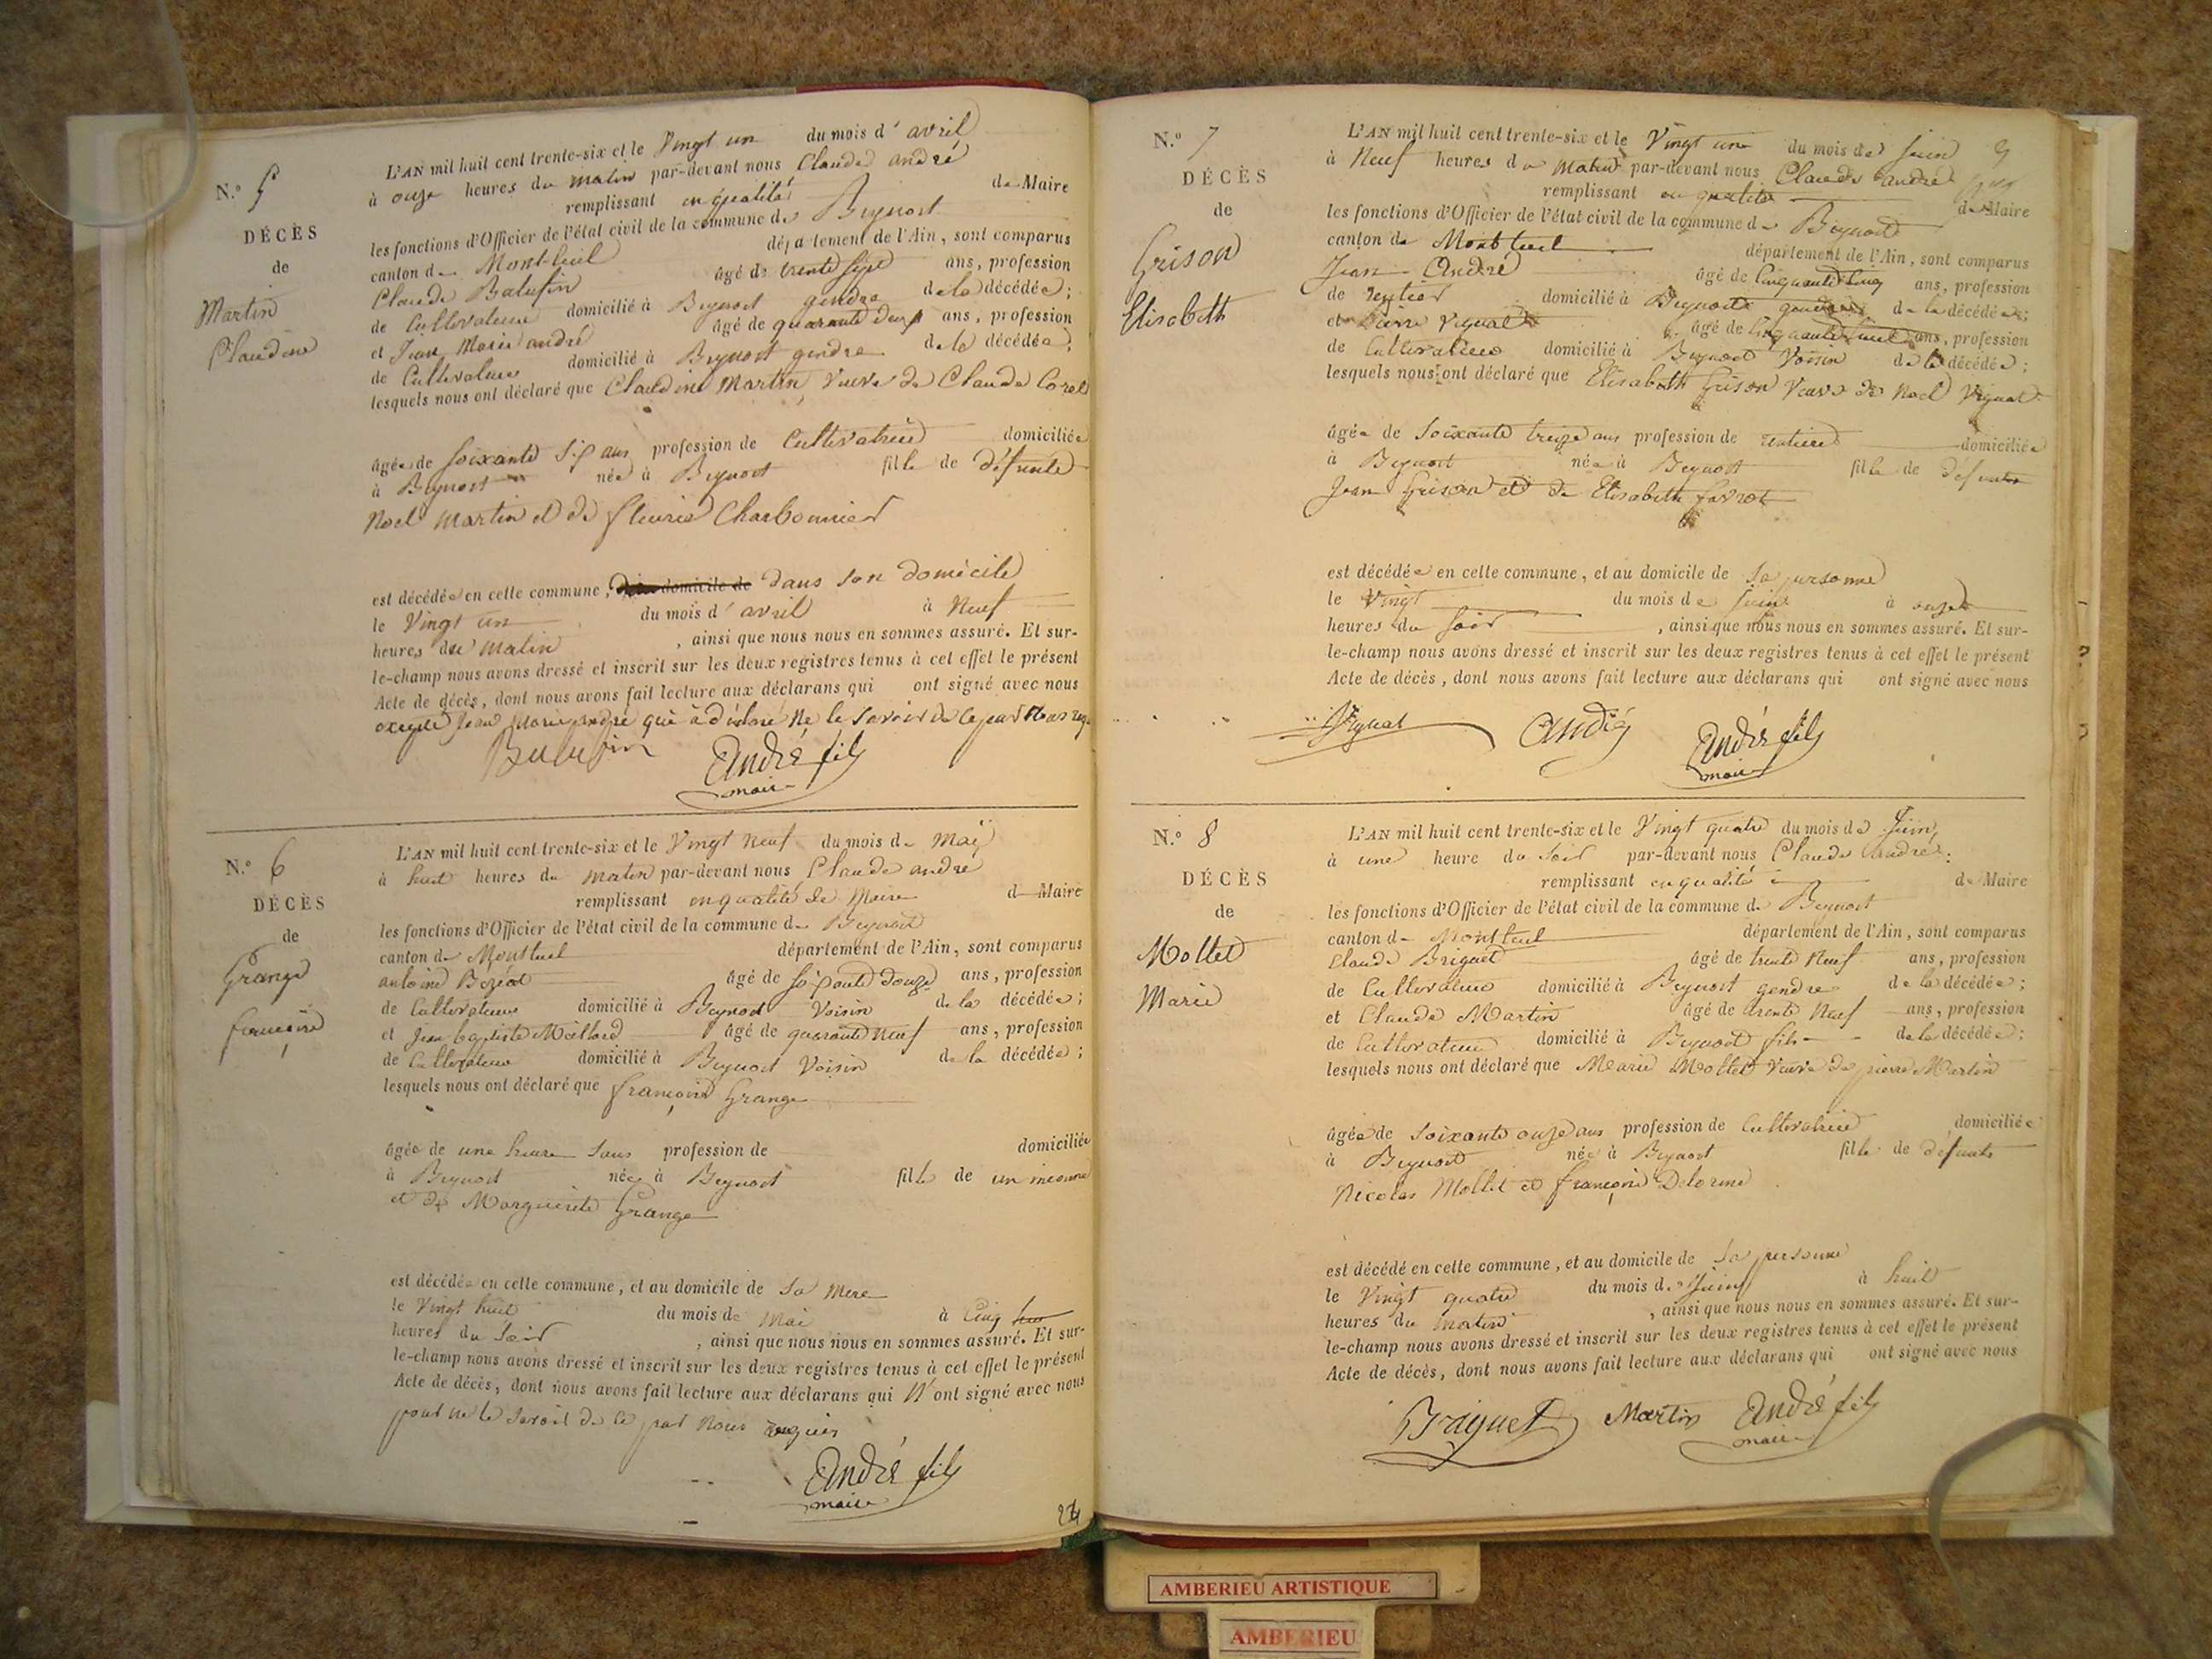 N.º 5
DÉCÈS
de
Martin
Claudine
L'AN mil huit cent trente-six et le Vingt un du mois d' avril
à onze heures du matin par-devant nous Claude andré
remplissant en qualité de Maire
les fonctions d'Officier de l'état civil de la commune de Beynost
canton de Montluel département de l'Ain, sont comparus
Claude Balufin âgé de trente sept ans, profession
de Cultivateur domicilié à Beynost gendre de la décédée;
et Jean Marie andré âgé de quarante deux ans, profession
de Cultivateur domicilié à Beynost gendre de la décédée;
lesquels nous ont déclaré que Claudine Martin, Veuve de Claude
âgée de soixante six ans profession de Cultivatrice domiciliée
à Beynost née à Beynost fille de défunts
Noel Martin et de fleurie Charbonnier
est décédée en cette commune, dans son domicile
le Vingt un du mois d' avril à Neuf
heures du matin, ainsi que nous nous en sommes assuré. Et sur-
le-champ nous avons dressé et inscrit sur les deux registres tenus à cet effet le présent
Acte de décès, dont nous avons fait lecture aux déclarans qui ont signé avec nous
excepté Jean Marie andré qui à déclaré ne le savoir de ce par nous
Balufin André fils
maire
N.º 6
DÉCÈS
de
Grange
françoise
L'AN mil huit cent trente-six et le Vingt Neuf du mois de Mai
à huit heures du matin par-devant nous Claude andré
remplissant en qualité de Maire de Maire
les fonctions d'Officier de l'état civil de la commune de Beynost
canton de Montluel département de l'Ain, sont comparus
antoine âgé de soixante douze ans, profession
de Cultivateur domicilié à Beynost Voisin de la décédée;
et Jean baptiste Maillard âgé de quarante neuf ans, profession
de Cultivateur domicilié à Beynost Voisin de la décédée;
lesquels nous ont déclaré que françoise Grange
âgée de une heure sans profession de domiciliée
à Beynost née à Beynost fille de un inconnu
et de Marguerite Grange
est décédée en cette commune, et au domicile de Sa Mere
le Vingt huit du mois de Mai à Cinq
heures du Soir, ainsi que nous nous en sommes assuré. Et sur-
le-champ nous avons dressé et inscrit sur les deux registres tenus à cet effet le présent
Acte de décès, dont nous avons fait lecture aux déclarans qui N'ont signé avec nous
pour ne le savoir de ce par nous requis
André fils
maire
N.º 7
DÉCÈS
de
Grison
Elisabeth
L'AN mil huit cent trente-six et le Vingt une du mois de juin
à Neuf heures du Matin par-devant nous Claude andré
remplissant en qualité de Maire
les fonctions d'Officier de l'état civil de la commune de Beynost
canton de Montluel département de l'Ain, sont comparus
Jean André âgé de Cinquante Cinq ans, profession
de rentier domicilié à Beynost gendre de la décédée;
et Pierre Vignat âgé de Cinquante huit ans, profession
de Cultivateur domicilié à Beynost Voisin de la décédée;
lesquels nous ont déclaré que Elisabeth Grison Veuve de Noel Vignat
âgée de Soixante treize ans profession de rentiere domiciliée
à Beynost née à Beynost fille de défunts
Jean Grison et de Elisabeth favrot
est décédée en cette commune, et au domicile de Sa personne
le Vingt du mois de juin à onze
heures du Soir, ainsi que nous nous en sommes assuré. Et sur-
le-champ nous avons dressé et inscrit sur les deux registres tenus à cet effet le présent
Acte de décès, dont nous avons fait lecture aux déclarans qui ont signé avec nous
Vignat André André fils
maire
N.º 8
DÉCÈS
de
Mollet
Marie
L'AN mil huit cent trente-six et le Vingt quatre du mois de Juin
à une heure du Soir par-devant nous Claude andré
remplissant en qualité de Maire
les fonctions d'Officier de l'état civil de la commune de Beynost
canton de Montluel département de l'Ain, sont comparus
Claude Briguet âgé de trente Neuf ans, profession
de Cultivateur domicilié à Beynost gendre de la décédée;
et Claude Martin âgé de trente Neuf ans, profession
de Cultivateur domicilié à Beynost fils de la décédée;
lesquels nous ont déclaré que Marie Mollet Veuve de pierre Martin
âgée de Soixante onze ans profession de Cultivatrice domiciliée
à Beynost née à Beynost fille de défunts
Nicolas Mollet et françoise Delorme
est décédé en cette commune, et au domicile de Sa personne
le Vingt quatre du mois de Juin à huit
heures du Matin, ainsi que nous nous en sommes assuré. Et sur-
le-champ nous avons dressé et inscrit sur les deux registres tenus à cet effet le présent
Acte de décès, dont nous avons fait lecture aux déclarans qui ont signé avec nous
Martin André fils
maire
AMBERIEU ARTISTIQUE
AMBERIEU